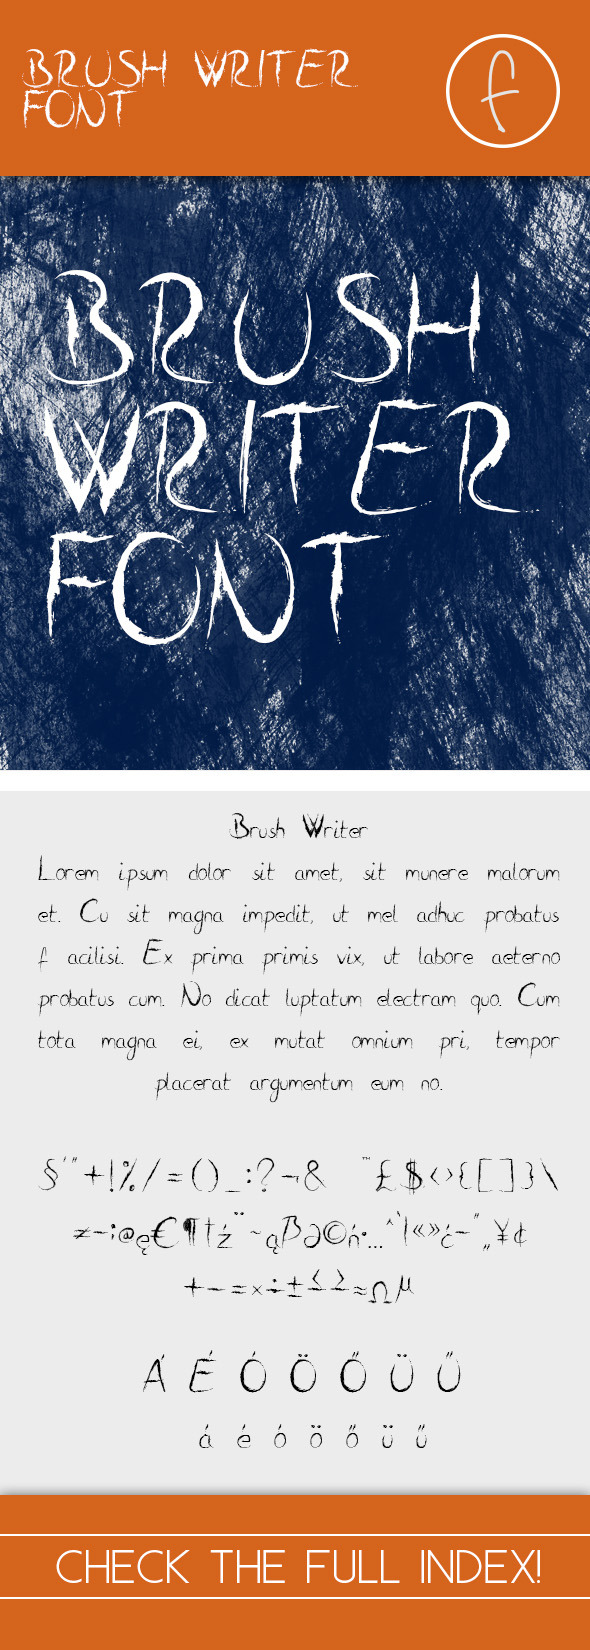 BRUSH WRITER
FONT
f
BRUSH
WRITER
FONT
Brush Writer
Lorem ipsum dolor sit amet, sit munere malorum
et. Cu sit magna impedit, ut mel adhuc probatus
f acilisi. Ex prima primis vix, ut labore aeterno
probatus cum. No dicat luptatum electram quo. Cum
tota magna ei, ex mutat omnium pri, tempor
placerat argumentum eum no.
§'"+!%/=()_:?¬& ™£$‹›{[]}\
≠–;@ę€¶†ź¨~ąβ∂©ń•…^`|«»ć–"„¥¢
+−=×÷±≤≥≈Ωµ
Á É Ó Ö Ő Ü Ű
á é ó ö ő ü ű
CHECK THE FULL INDEX!